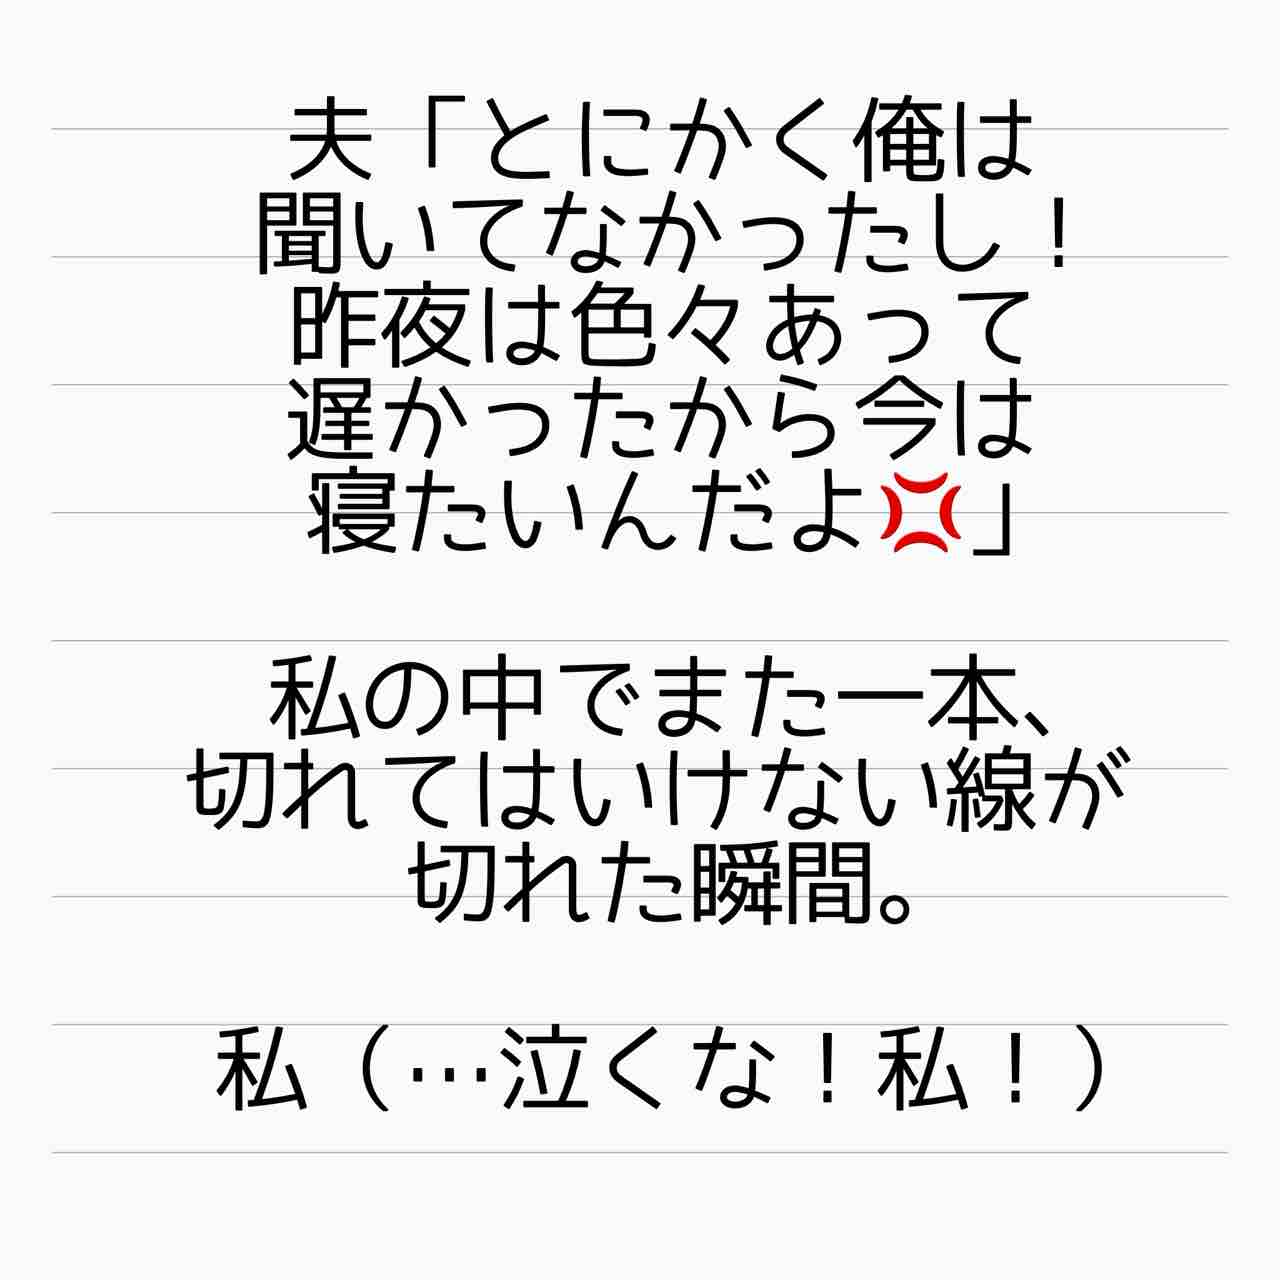 夫「とにかく俺は
聞いてなかったし！
昨夜は色々あって
遅かったから今は
寝たいんだよ💢」
私の中でまた一本、
切れてはいけない線が
切れた瞬間。
私（…泣くな！私！）